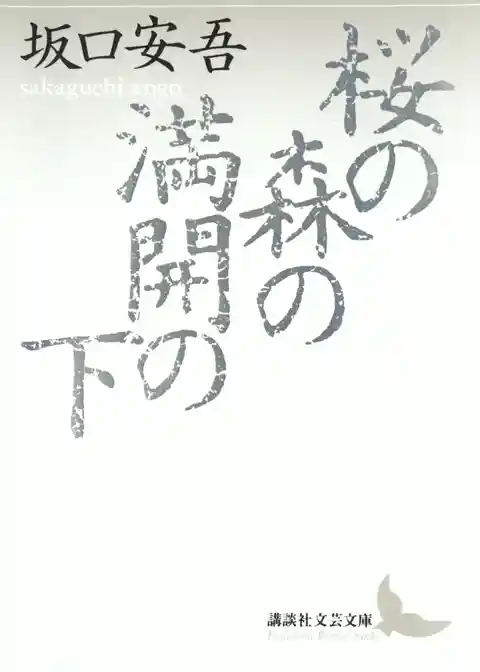 坂口安吾
sakaguchi ango
桜の
森の
満開の
下
講談社文芸文庫
Kodansha Bungei bunko